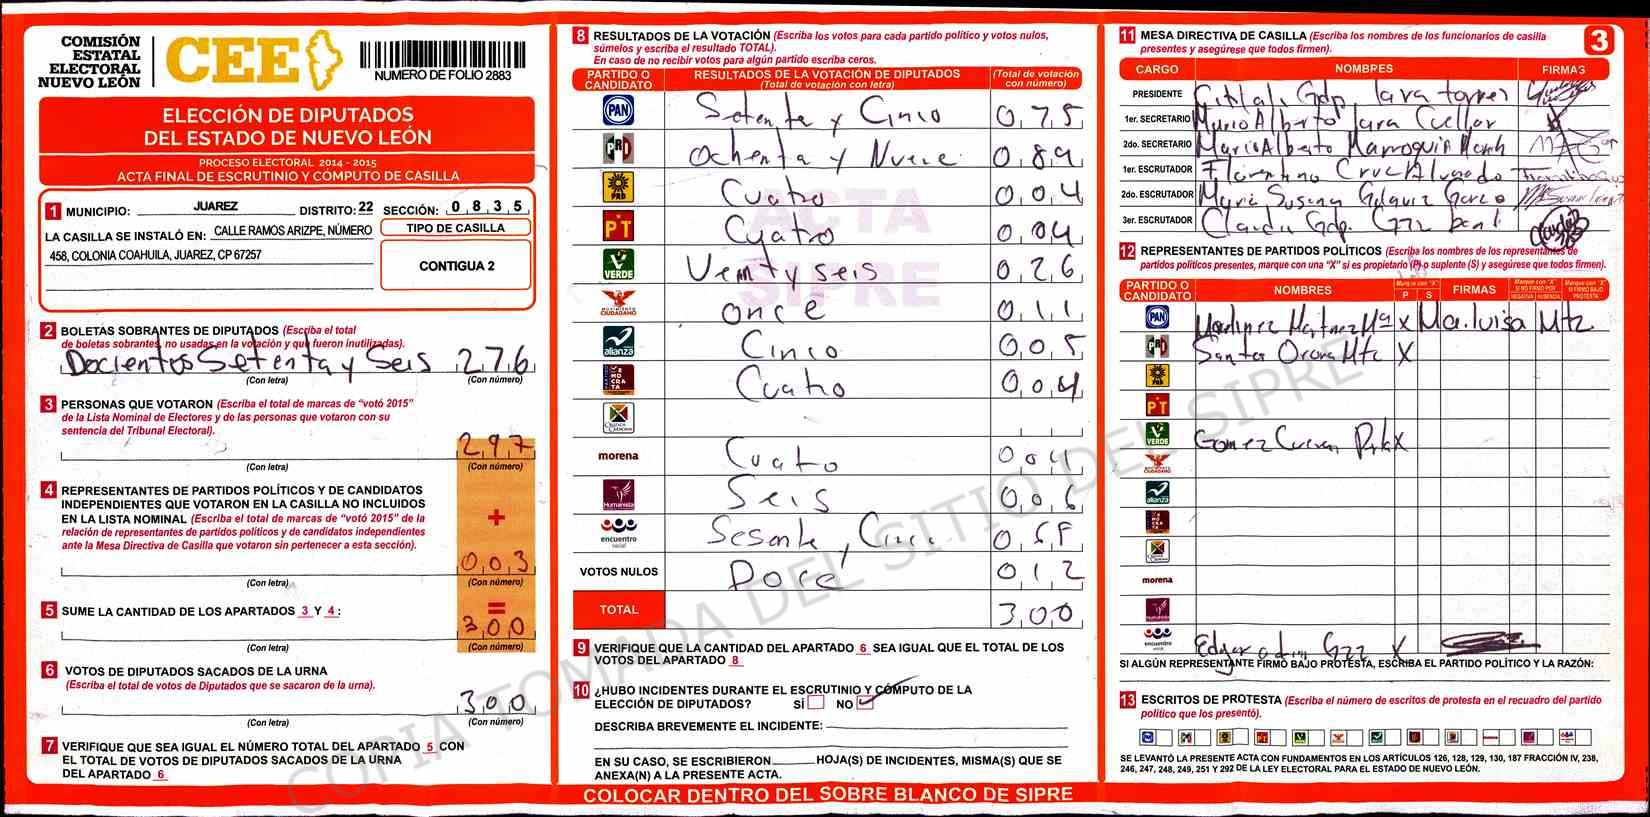 COMISIÓN
ESTATAL
ELECTORAL
NUEVO LEÓN
CEE
NUMERO DE FOLIO 2883
ELECCIÓN DE DIPUTADOS
DEL ESTADO DE NUEVO LEÓN
PROCESO ELECTORAL 2014 - 2015
ACTA FINAL DE ESCRUTINIO Y CÓMPUTO DE CASILLA
1 MUNICIPIO: JUAREZ DISTRITO: 22 SECCIÓN: 0 8 3 5
LA CASILLA SE INSTALÓ EN: CALLE RAMOS ARIZPE, NÚMERO
458, COLONIA COAHUILA, JUAREZ, CP 67257
TIPO DE CASILLA
CONTIGUA 2
2 BOLETAS SOBRANTES DE DIPUTADOS (Escriba el total
de boletas sobrantes no usadas en la votación y que fueron inutilizadas).
Docientos Setenta y Seis 276
(Con letra) (Con número)
3 PERSONAS QUE VOTARON (Escriba el total de marcas de “votó 2015”
de la Lista Nominal de Electores y de las personas que votaron con su
sentencia del Tribunal Electoral).
297
(Con letra) (Con número)
4 REPRESENTANTES DE PARTIDOS POLÍTICOS Y DE CANDIDATOS
INDEPENDIENTES QUE VOTARON EN LA CASILLA NO INCLUIDOS
EN LA LISTA NOMINAL (Escriba el total de marcas de “votó 2015” de la
relación de representantes de partidos políticos y de candidatos independientes
ante la Mesa Directiva de Casilla que votaron sin pertenecer a esta sección).
+
003
(Con letra) (Con número)
5 SUME LA CANTIDAD DE LOS APARTADOS 3 Y 4:
=
300
(Con letra) (Con número)
6 VOTOS DE DIPUTADOS SACADOS DE LA URNA
(Escriba el total de votos de Diputados que se sacaron de la urna).
300
(Con letra) (Con número)
7 VERIFIQUE QUE SEA IGUAL EL NÚMERO TOTAL DEL APARTADO 5 CON
EL TOTAL DE VOTOS DE DIPUTADOS SACADOS DE LA URNA
DEL APARTADO 6.
8 RESULTADOS DE LA VOTACIÓN (Escriba los votos para cada partido político y votos nulos,
súmelos y escriba el resultado TOTAL).
En caso de no recibir votos para algún partido escriba ceros.
PARTIDO O CANDIDATO RESULTADOS DE LA VOTACIÓN DE DIPUTADOS (Total de votación con letra) (Total de votación con número)
PAN Setenta y Cinco 075
PRI Ochenta y Nueve 089
PRD Cuatro 004
PT Cuatro 004
VERDE Veintyseis 026
MOVIMIENTO CIUDADANO once 011
alianza Cinco 005
DEMOCRATA Cuatro 004
CRUZADA CIUDADANA
morena Cuatro 004
Humanista Seis 006
encuentro social Sesenta y Cinco 065
VOTOS NULOS Doce 012
TOTAL 300
ACTA
SIPRE
9 VERIFIQUE QUE LA CANTIDAD DEL APARTADO 6 SEA IGUAL QUE EL TOTAL DE LOS
VOTOS DEL APARTADO 8
10 ¿HUBO INCIDENTES DURANTE EL ESCRUTINIO Y CÓMPUTO DE LA
ELECCIÓN DE DIPUTADOS? SÍ NO
DESCRIBA BREVEMENTE EL INCIDENTE:
EN SU CASO, SE ESCRIBIERON HOJA(S) DE INCIDENTES, MISMA(S) QUE SE
ANEXA(N) A LA PRESENTE ACTA.
COLOCAR DENTRO DEL SOBRE BLANCO DE SIPRE
11 MESA DIRECTIVA DE CASILLA (Escriba los nombres de los funcionarios de casilla
presentes y asegúrese que todos firmen).
3
CARGO NOMBRES FIRMAS
PRESIDENTE Citlali Gdp. lara torres
1er. SECRETARIO Mario Alberto Lara Cuellar
2do. SECRETARIO Mario Alberto Marroquin
1er. ESCRUTADOR Florentino Cruz Alvarado
2do. ESCRUTADOR Maria Susana
3er. ESCRUTADOR Claudia Gdp. Gzz
12 REPRESENTANTES DE PARTIDOS POLÍTICOS (Escriba los nombres de los representantes de
partidos políticos presentes, marque con una “X” si es propietario (P) o suplente (S) y asegúrese que todos firmen).
PARTIDO O CANDIDATO NOMBRES Marque con "X" P S FIRMAS Marque con "X" SI NO FIRMÓ POR NEGATIVA AUSENCIA Marque con "X" SI FIRMÓ BAJO PROTESTA
PAN Martinez Martinez Ma X Ma. luisa Mtz
PRI Santos Mtz X
PRD
PT
VERDE Gomez X
MOVIMIENTO CIUDADANO
alianza
DEMOCRATA
morena
Humanista
encuentro social Edgar Gzz X
SI ALGÚN REPRESENTANTE FIRMÓ BAJO PROTESTA, ESCRIBA EL PARTIDO POLÍTICO Y LA RAZÓN:
13 ESCRITOS DE PROTESTA (Escriba el número de escritos de protesta en el recuadro del partido
político que los presentó).
SE LEVANTÓ LA PRESENTE ACTA CON FUNDAMENTOS EN LOS ARTÍCULOS 126, 128, 129, 130, 187 FRACCIÓN IV, 238,
246, 247, 248, 249, 251 Y 292 DE LA LEY ELECTORAL PARA EL ESTADO DE NUEVO LEÓN.
COPIA TOMADA DEL SITIO DEL SIPRE